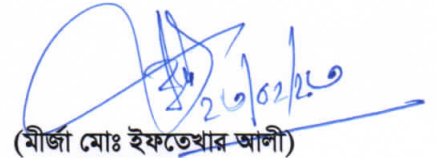 ২৩/০২/২৩
(মীর্জা মোঃ ইফতেখার আলী)